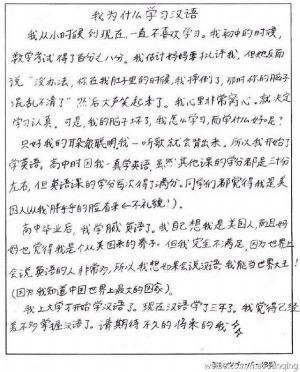 我为什么学习汉语
我从小时候到现在，一直不喜欢学习。我初中的时候，
数学考试得了百分之八分。我估计妈妈要批评我，但她反而
说“没办法，你在我肚子里的时候，我摔倒了，那时你的脑子
混乱不清了”然后大声笑起来了。我心里非常窝心。就决定
学习认真。可是，我的脑子坏了，我怎么学习，而学什么好呢？
只好我的耳朵很聪明我一听歌就会背出来，所以我开始了
学英语，高中时因我一真学英语，虽然其他课的学分都是三十分
左右，但英语课的学分每次得了满分。同学们都觉得我是美
国人(从我胖乎乎的脸看来←不礼貌！)。
高中毕业后，我学腻英语了。我自己想我是美国人，而且妈
妈也觉得我是个从美国来的养子。但我完全不满足，因为世界上
会说英语的人非常多，所以我想如果会说汉语我能当世界大王！
(因为我知道中国世界上最大的国家)。
我上大学才开始学汉语了。现在汉语学了三年了。我觉得已经
差不多掌握汉语了。请期待不久的将来的我